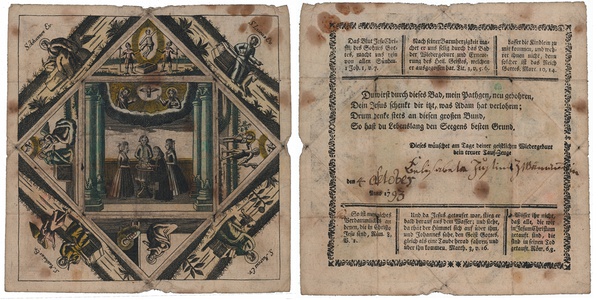 S. Johannes Ev.
Das Blut Jesu Chri-
sti, des Sohnes Got-
tes, macht uns rein
von aller Sünde.
1 Joh. 1, v. 7.
Nach seiner Barmherzigkeit ma-
chet er uns selig durch das Bad
der Wiedergeburt und Erneue-
rung des Heil. Geistes, welchen
er ausgegossen hat. Tit. 3, v. 5. 6.
Lasset die Kindlein zu
mir kommen, und weh-
ret ihnen nicht, denn
solcher ist das Reich
Gottes. Marc. 10, 14.
Du wirst durch dieses Bad, mein Pathgen, neu gebohren,
Dein Jesus schenkt dir itzt, was Adam hat verlohren;
Drum denke stets an diesen großen Bund,
So hast du Lebenslang den Seegens besten Grund,
Dieses wünschet am Tage deiner geistlichen Wiedergeburt
dein treuer Tauf-Zeuge
den 4 October
Anno 1793
So ist nun nichts
Verdammliches an
denen, die in Christo
Jesu sind, Röm. 8.
V. 1.
Und da Jesus getaufet war, stieg er
bald herauf aus dem Wasser; und siehe,
da that der Himmel sich auf über ihm.
und Johannes sahe, den Geist Gottes,
gleich als eine Taube herab fahren, und
über ihn kommen. Matth. 3, v. 16.
Wisset ihr nicht,
daß alle, die wir
in Jesum Christum
getauft sind, die
sind in seinen Tod
getauft. Röm. 6, 3.